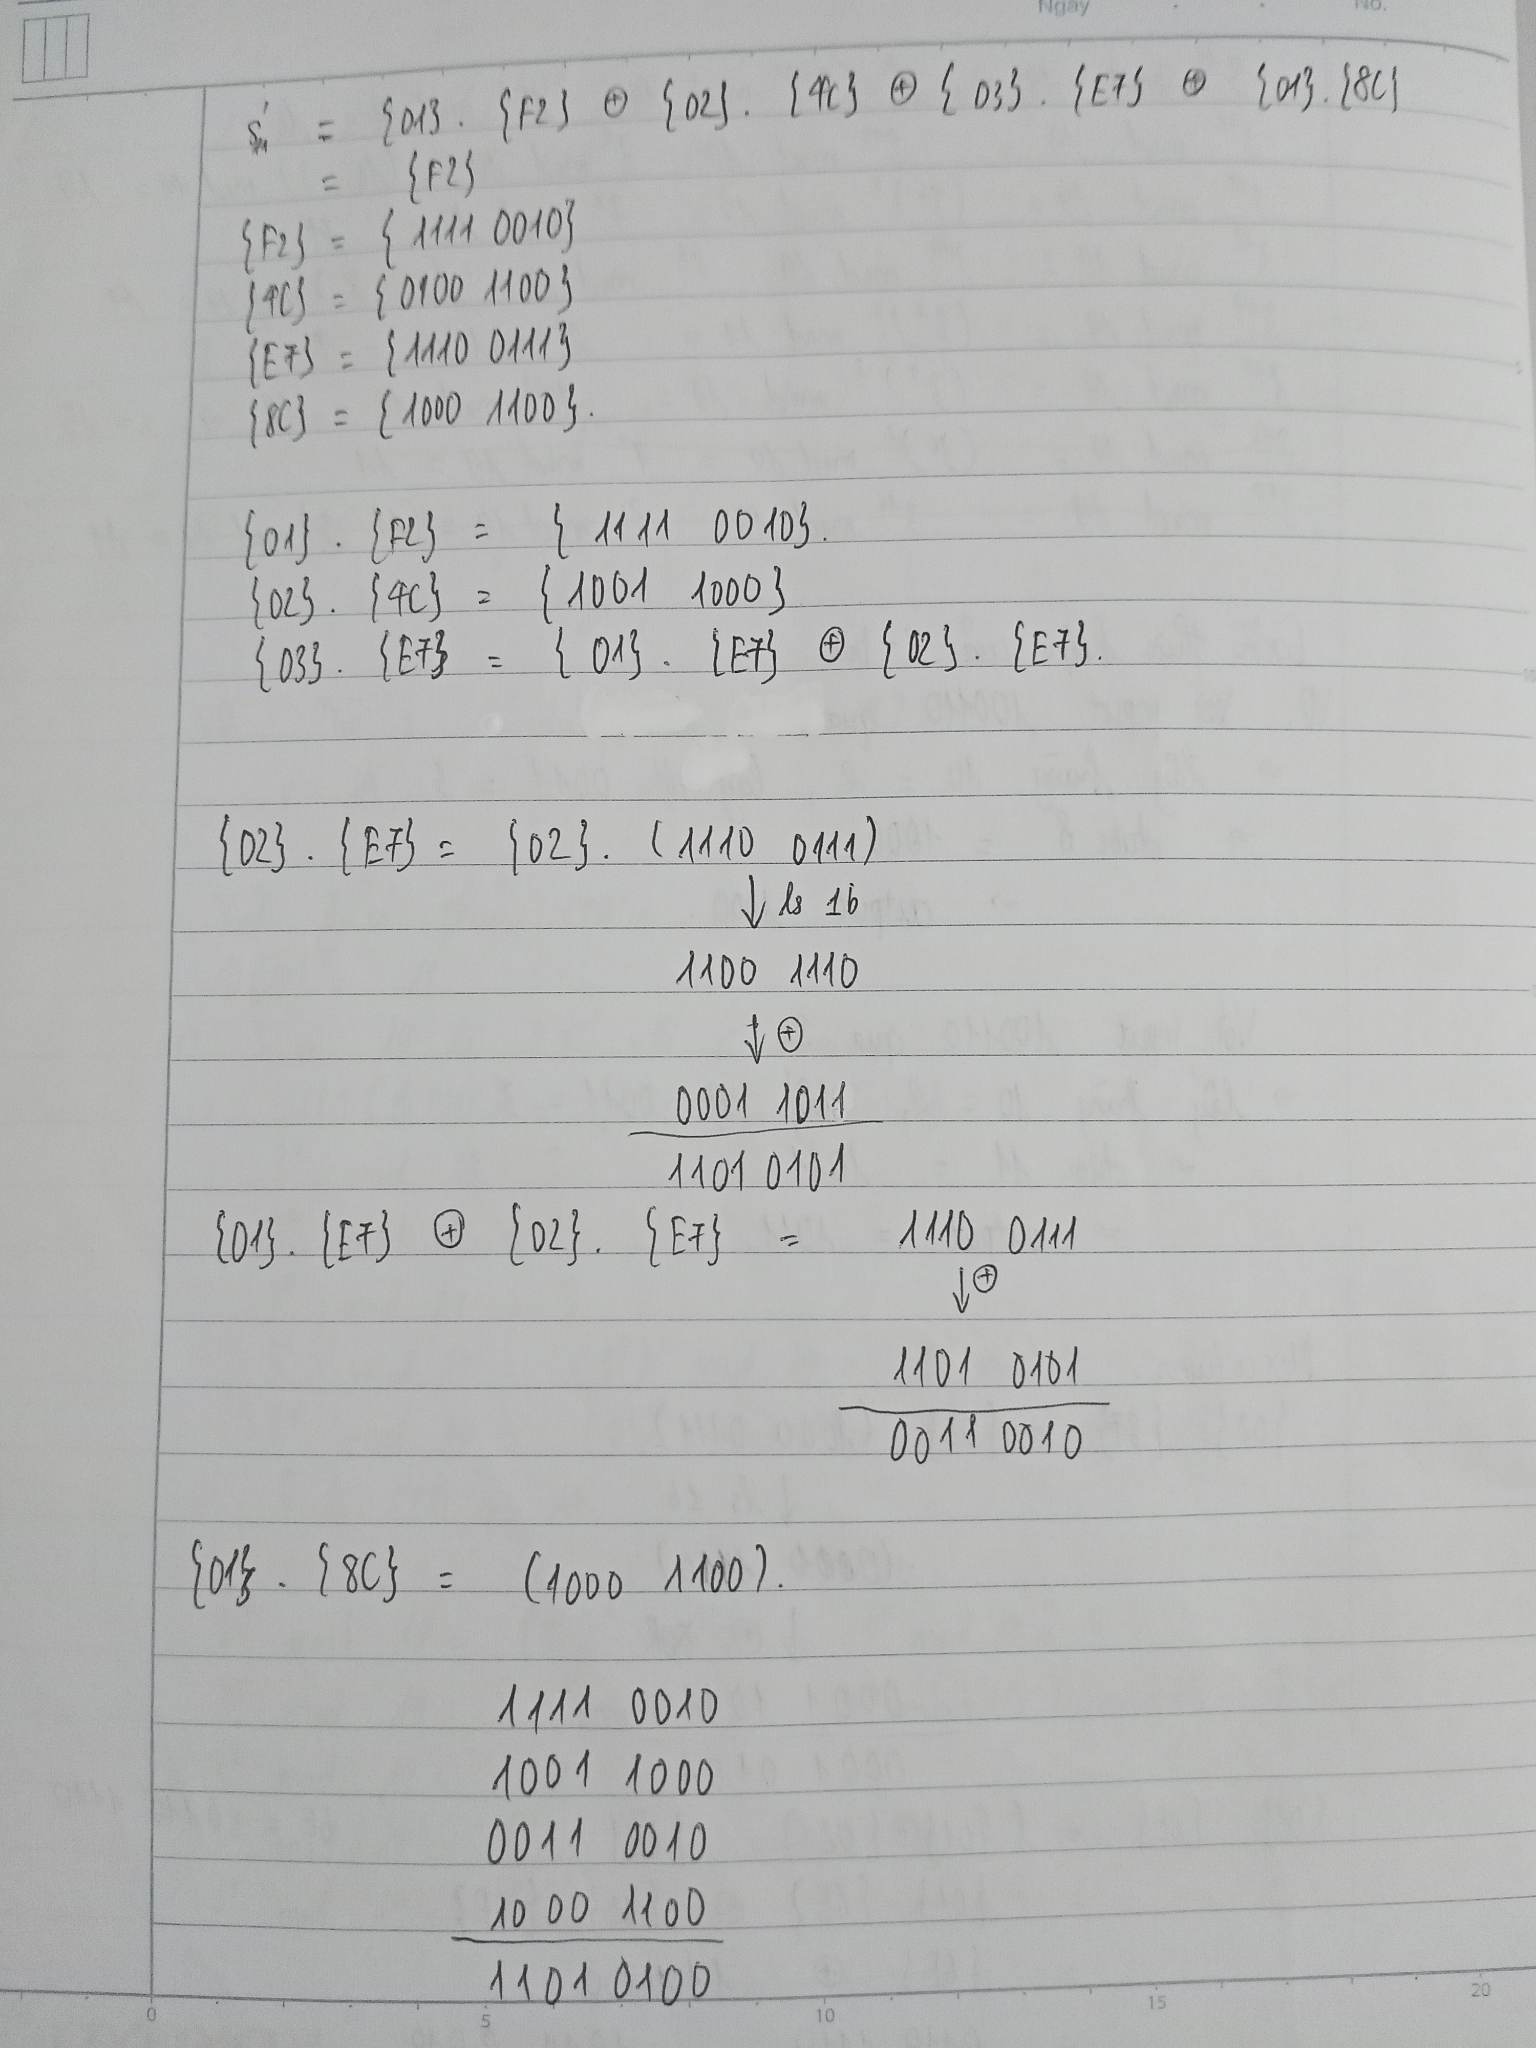 Ngày No.
S' = {01}. {F2} ⊕ {02}. {4C} ⊕ {03}. {E7} ⊕ {01}.{8C}
= {F2}
{F2} = {1111 0010}
{4C} = {0100 1100}
{E7} = {1110 0111}
{8C} = {1000 1100}.
{01}. {F2} = {1111 0010}.
{02}. {4C} = {1001 1000}
{03}. {E7} = {01}. {E7} ⊕ {02}. {E7}.
{02}. {E7} = {02}. (1110 0111)
↓ ls 1b
1100 1110
↓ ⊕
0001 1011
1101 0101
{01}. {E7} ⊕ {02}. {E7} = 1110 0111
↓ ⊕
1101 0101
0011 0010
{01}. {8C} = (1000 1100).
1111 0010
1001 1000
0011 0010
1000 1100
1101 0100
0 5 10 15 20